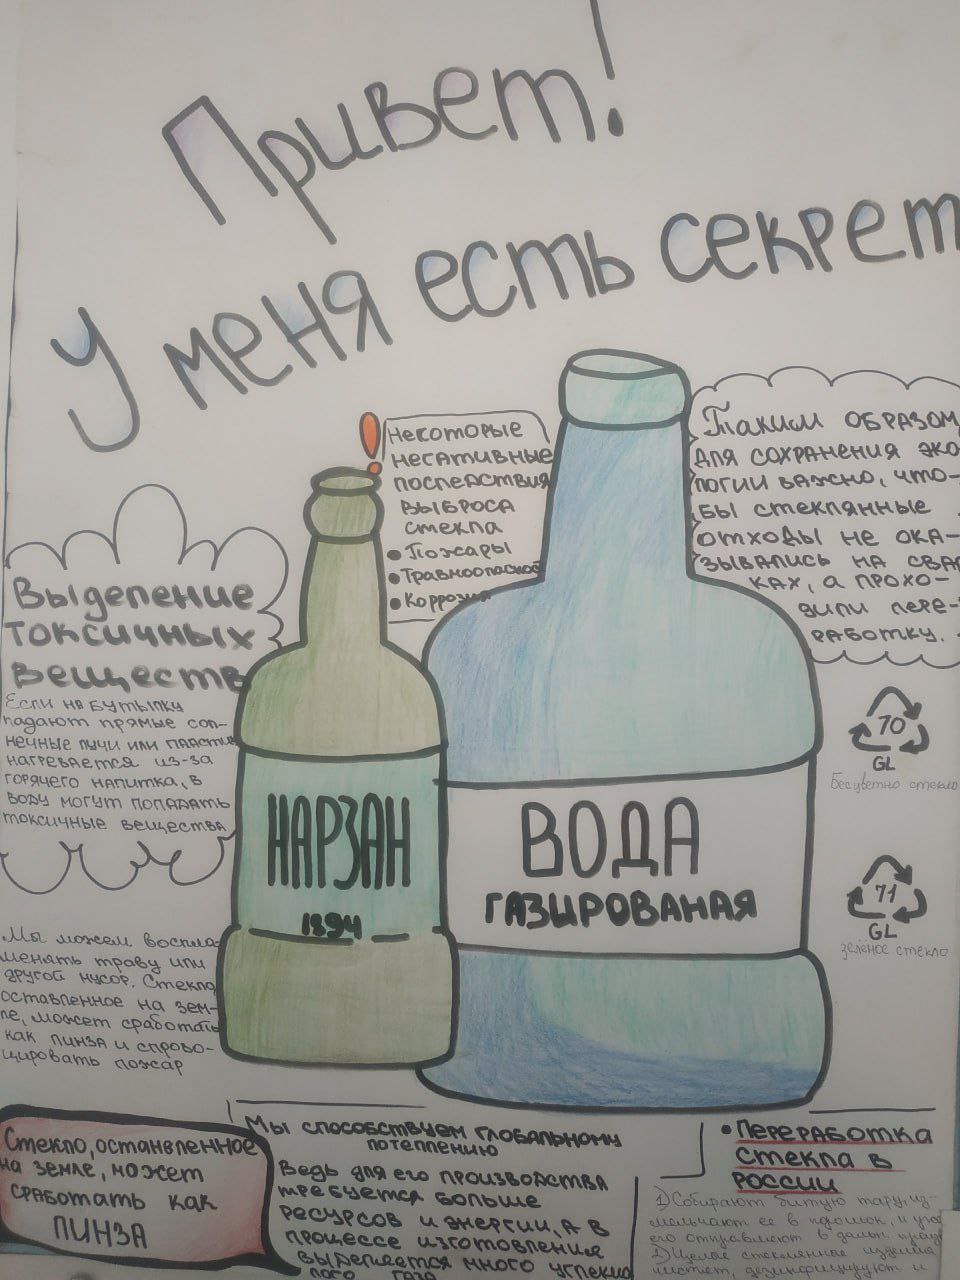 Привет!
У меня есть секрет
Некоторые
негативные
последствия
выброса
стекла
• Пожары
• Травмоопасное
• Коррозия
Таким образом,
для сохранения эко
логии важно, что-
бы стеклянные
отходы не ока-
зывались на свал
ках, а прохо-
дили пере-
работку.
Выделение
токсичных
веществ
Если на бутылку
падают прямые сол-
нечные лучи или пластик
нагревается из-за
горячего напитка, в
воду могут попадать
токсичные вещества
70
GL
Бесцветно стекло
71
GL
зелёное стекло
НАРЗАН
1894
ВОДА
ГАЗИРОВАНАЯ
Мы можем воспла-
менять траву или
другой мусор. Стекло,
оставленное на зем-
ле, может сработать
как линза и спрово-
цировать пожар
Стекло, оставленное
на земле, может
сработать как
ЛИНЗА
Мы способствуем глобальному
потеплению
Ведь для его производства
требуется больше
ресурсов и энергии, а в
процессе изготовления
выделяется много углекис
лого газа
• Переработка
стекла в
России
1) Собирают битую тару, из-
мельчают её в порошок, и
его отправляют в дальн.
2) Целые стеклянные изделия
чистят, дезинфицируют и